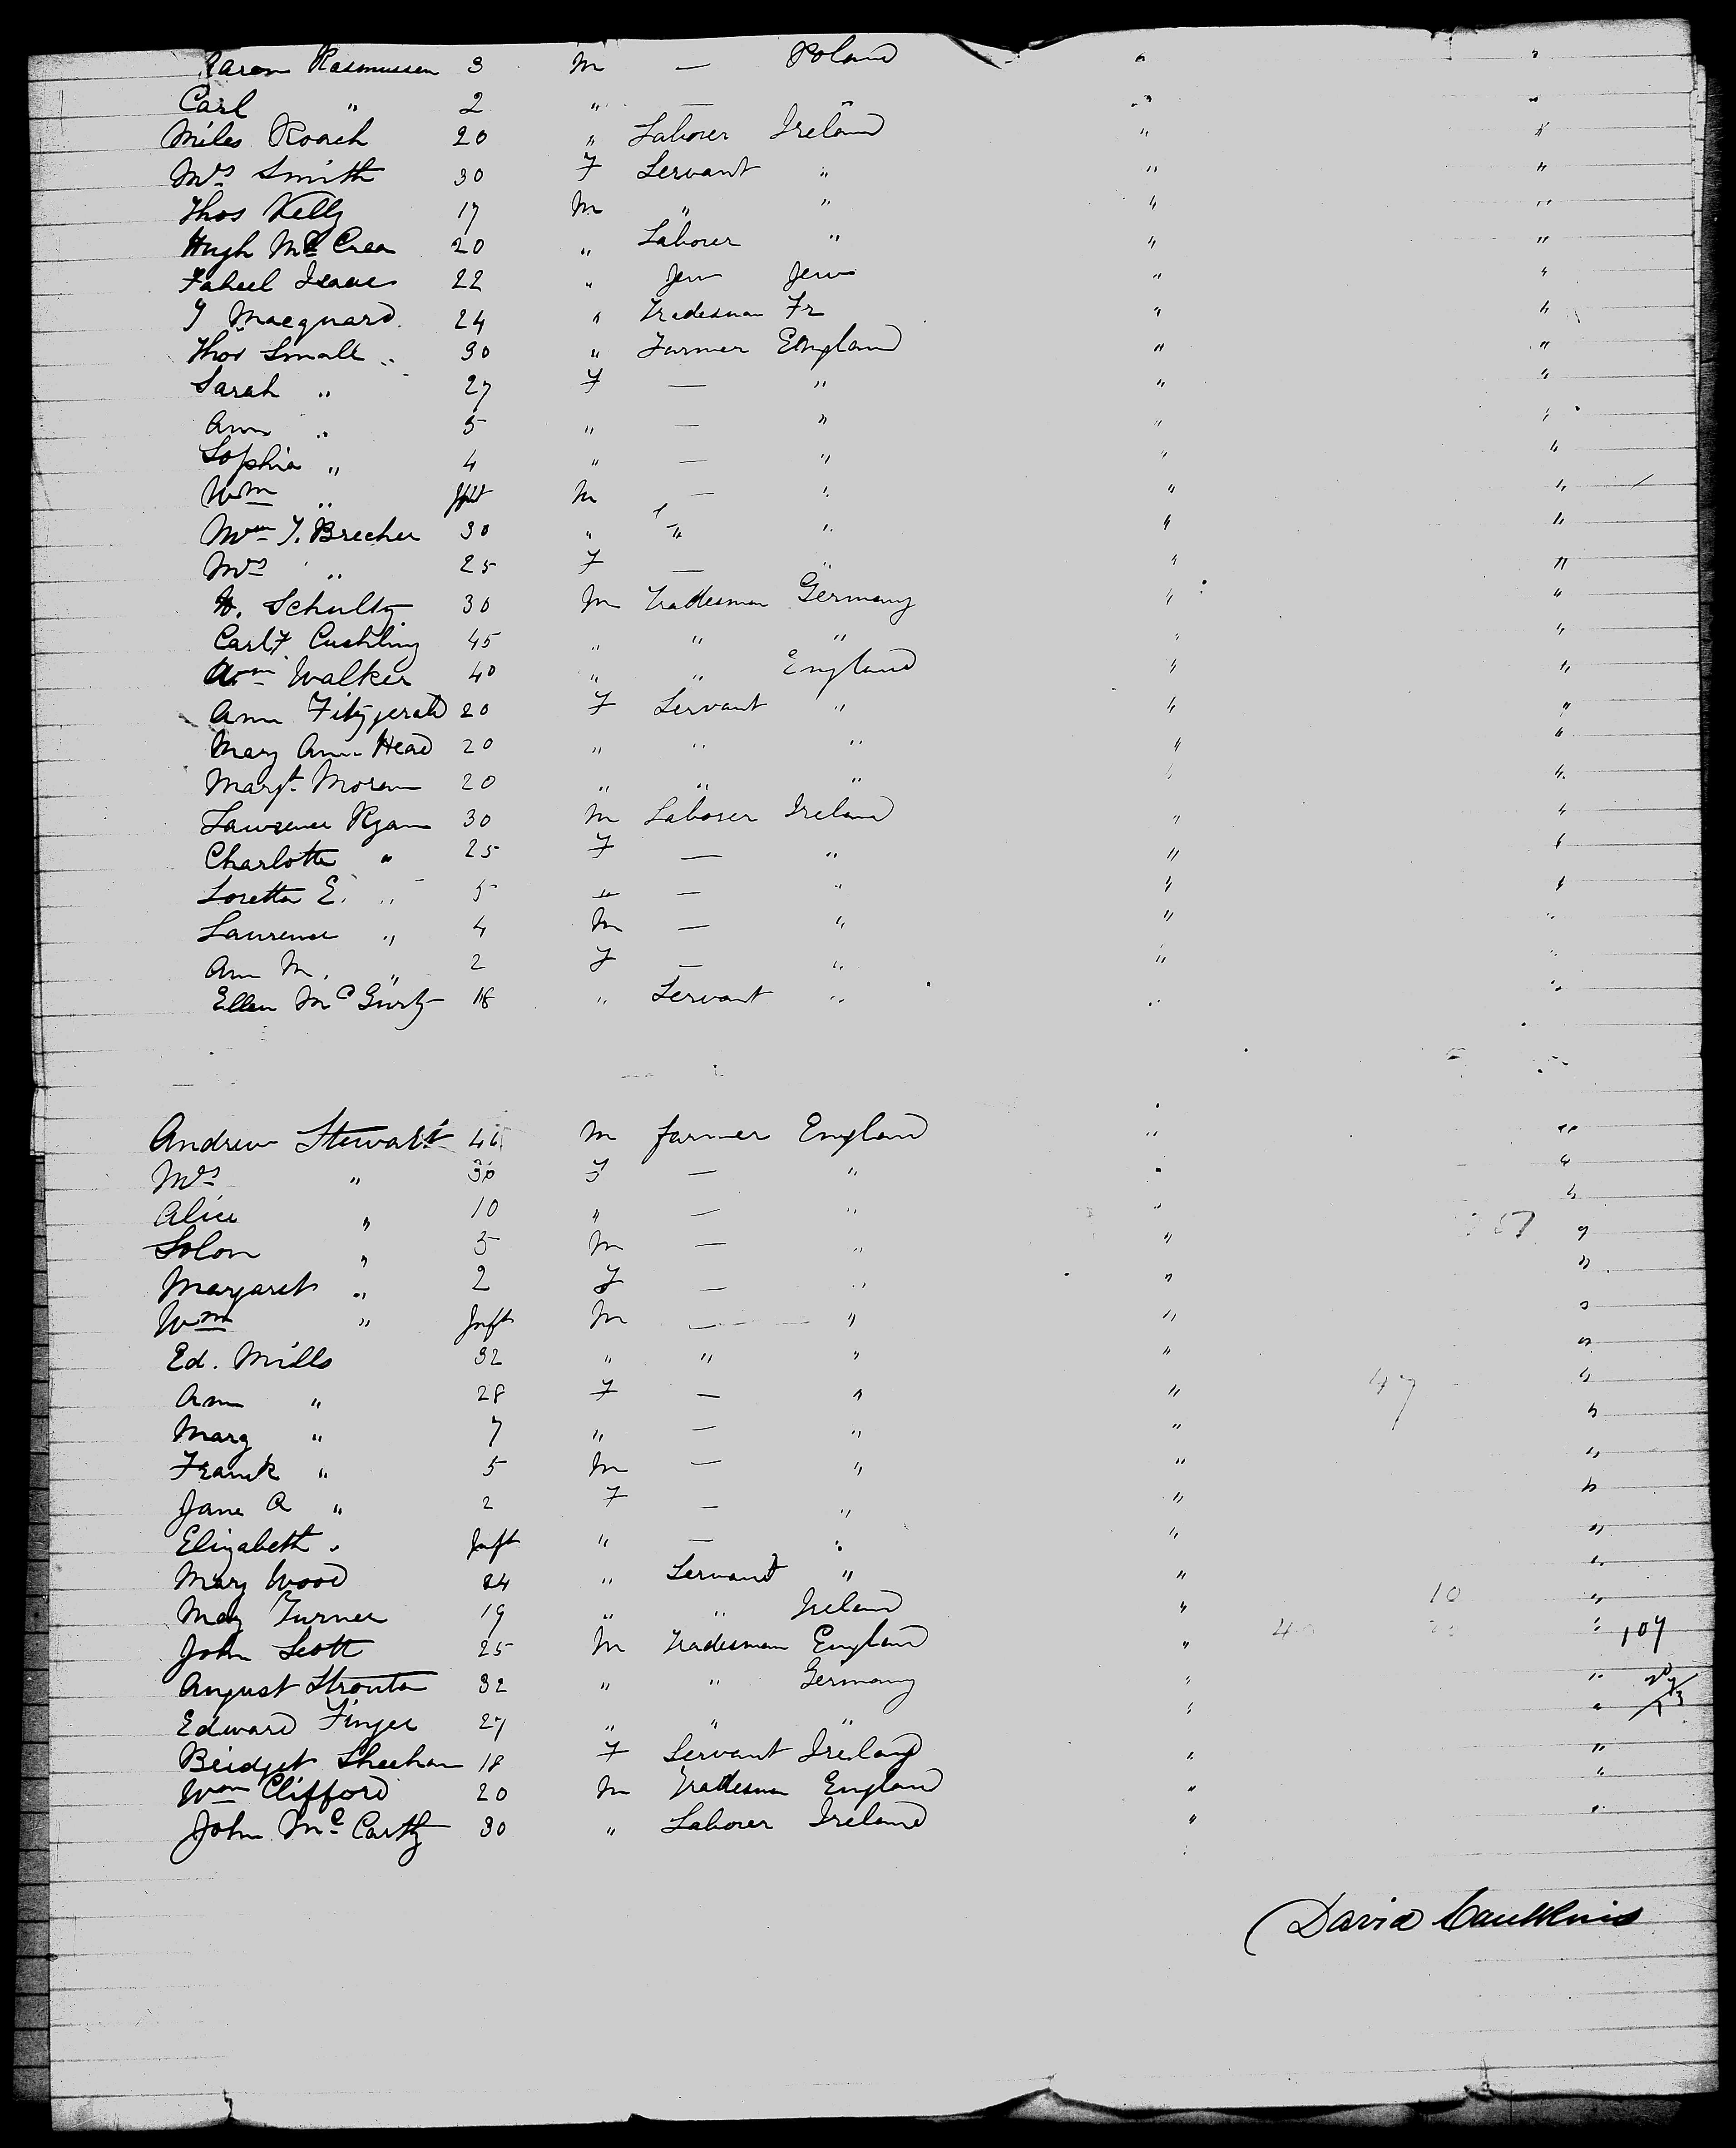 Aaron Rasmussen 3 M — Poland " "
Carl " 2 " — " " "
Miles Roach 20 " Laborer Ireland " "
Mrs Smith 30 F Servant " " "
Thos Kelly 17 M " " " "
Hugh McCrea 20 " Laborer " " "
Isaac 22 " Jew Jew " "
Macquard 24 " Tradesman Fr " "
Thos Small 30 " Farmer England " "
Sarah " 27 F — " " "
Ann " 5 " — " " "
Sophia " 4 " — " " "
Wm " Inft M — " " "
Wm T. Brecher 30 " " " " "
Mrs " 25 F — " " "
Schultz 30 M Tradesman Germany " "
Carl F Cushling 45 " " " " "
Wm Walker 40 " " England " "
Ann Fitzgerald 20 F Servant " " "
Mary Ann Head 20 " " " " "
Margt. Moran 20 " " " " "
Lawrence Ryan 30 M Laborer Ireland " "
Charlotte " 25 F — " " "
Loretta E. " 5 " — " " "
Laurence " 4 M — " " "
Ann M. " 2 F — " " "
Ellen Mc 18 " Servant " " "
Andrew Stewart M farmer England " "
Mrs " 30 F — " " "
Alice " 10 " — " " "
Solon " 5 M — " " "
Margaret " 2 F — " " "
Wm " Inft M — " " "
Ed. Mills 32 " " " " "
Ann " 28 F — " " 47 "
Mary " 7 " — " " "
Frank " 5 M — " " "
Jane A " 2 F — " " "
Elizabeth " Inft " — " " "
Mary Wood 24 " Servant " " "
May Turner 19 " " Ireland " 10 "
John Scott 25 M Tradesman England " " 107
August Strouta 32 " " Germany " "
Edward Finger 27 " " " " "
Bridget Sheehan 18 F Servant Ireland " "
Wm Clifford 20 M Tradesman England " "
John McCarthy 30 " Laborer Ireland " "
David Caulkins